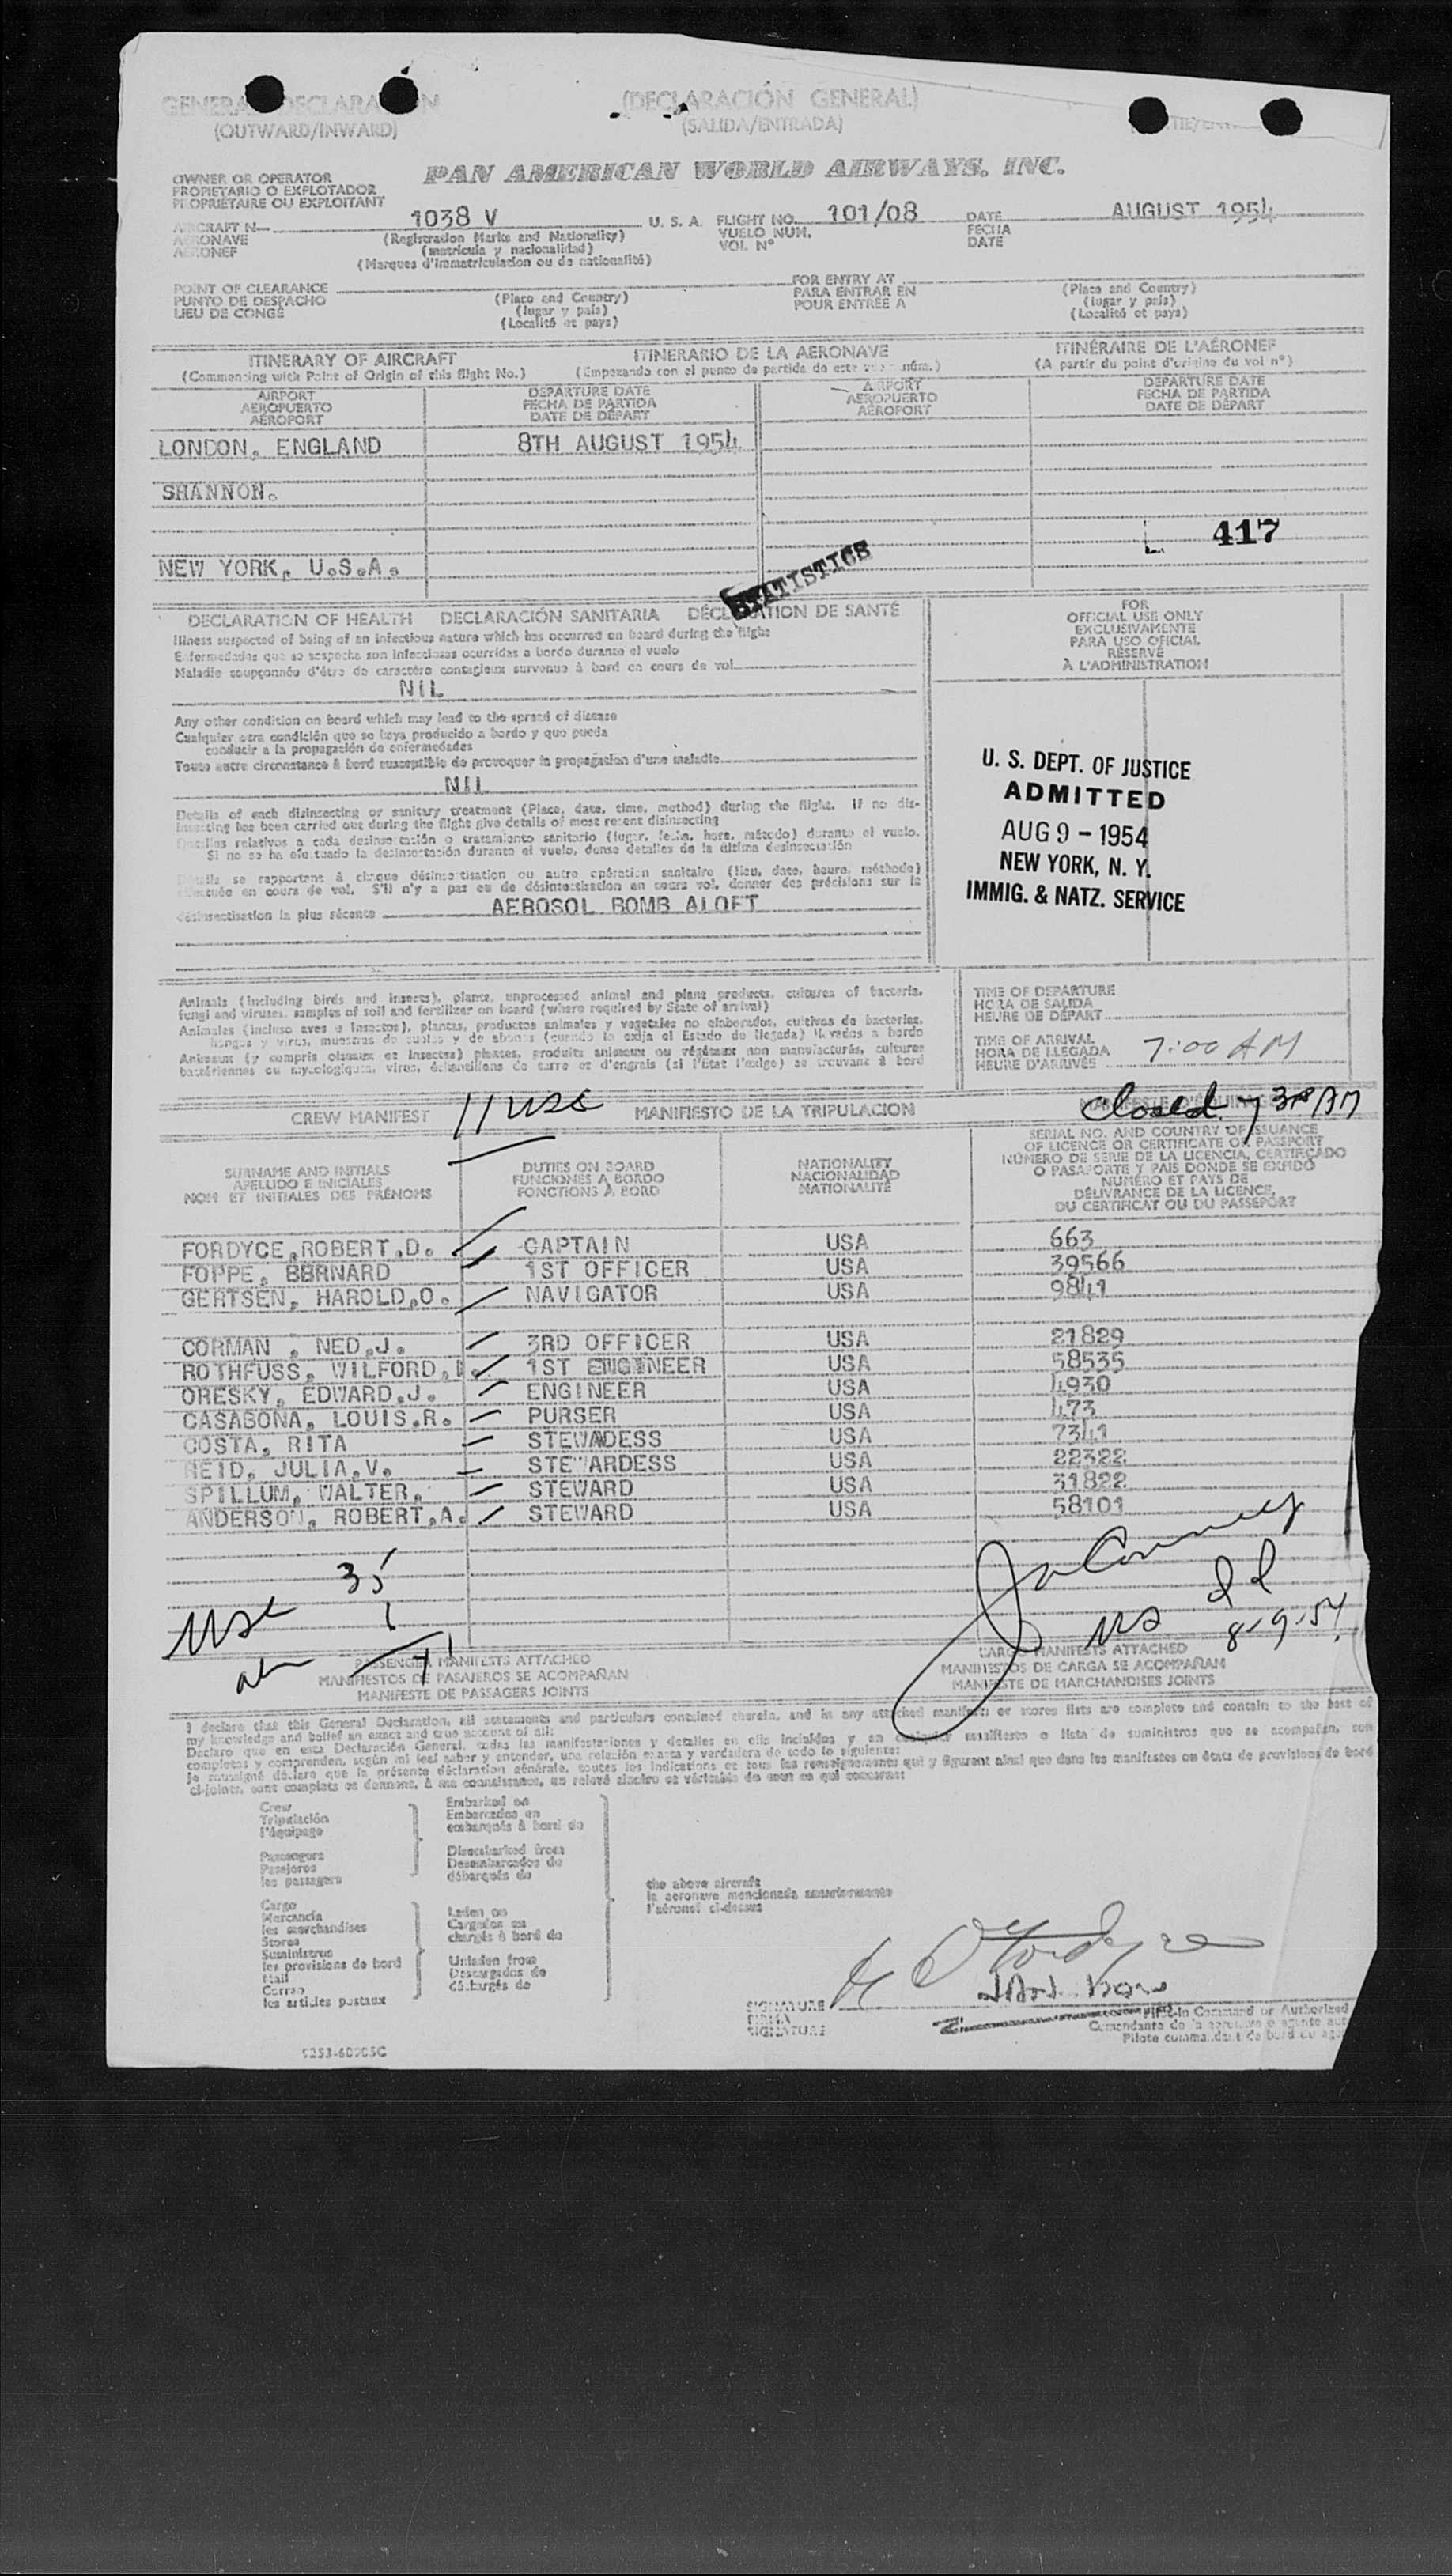 (DECLARACIÓN GENERAL)
(OUTWARD/INWARD) (SALIDA/ENTRADA)
OWNER OR OPERATOR PAN AMERICAN WORLD AIRWAYS, INC.
PROPIETARIO O EXPLOTADOR
PROPRIÉTAIRE OU EXPLOITANT
1038 V U. S. A. FLIGHT NO. 101/08 DATE AUGUST 1954
AERONAVE (Registration Marks and Nationality) VUELO NUM. FECHA
(matrícula y nacionalidad) VOL N° DATE
(Marques d'immatriculation ou de nationalité)
POINT OF CLEARANCE FOR ENTRY AT
PUNTO DE DESPACHO (Place and Country) PARA ENTRAR EN (Place and Country)
LIEU DE CONGÉ (lugar y país) POUR ENTRÉE A (lugar y país)
(Localité et pays) (Localité et pays)
ITINERARY OF AIRCRAFT ITINERARIO DE LA AERONAVE ITINÉRAIRE DE L'AÉRONEF
(Commencing with Point of Origin of this flight No.) (Empezando con el punto de partida de este núm.) (A partir du point d'origine du vol n°)
AIRPORT DEPARTURE DATE AIRPORT DEPARTURE DATE
AEROPUERTO FECHA DE PARTIDA AEROPUERTO FECHA DE PARTIDA
AÉROPORT DATE DE DÉPART AÉROPORT DATE DE DÉPART
LONDON, ENGLAND 8TH AUGUST 1954
SHANNON.
417
NEW YORK, U.S.A.
STATISTICS
DECLARATION OF HEALTH DECLARACIÓN SANITARIA DE SANTÉ
FOR
OFFICIAL USE ONLY
EXCLUSIVAMENTE
PARA USO OFICIAL
RÉSERVÉ
À L'ADMINISTRATION
Illness suspected of being of an infectious nature which has occurred on board during the flight
Enfermedades que se sospecha son infecciosas ocurridas a bordo durante el vuelo
Maladie soupçonnée d'être de caractère contagieux survenue à bord en cours de vol
NIL
Any other condition on board which may lead to the spread of disease
Cualquier otra condición que se haya producido a bordo y que pueda
conducir a la propagación de enfermedades
Toute autre circonstance à bord susceptible de provoquer la propagation d'une maladie
NIL
U. S. DEPT. OF JUSTICE
ADMITTED
AUG 9 - 1954
NEW YORK, N. Y.
IMMIG. & NATZ. SERVICE
Details of each disinsecting or sanitary treatment (Place, date, time, method) during the flight. If no dis-
insecting has been carried out during the flight give details of most recent disinsecting
relativos a cada desinsectación o tratamiento sanitario (lugar, fecha, hora, método) durante el vuelo.
Si no se ha efectuado la desinsectación durante el vuelo, dense detalles de la última desinsectación
se rapportant à chaque désinsectisation ou autre opération sanitaire (lieu, date, heure, méthode)
effectuée en cours de vol. S'il n'y a pas eu de désinsectisation en cours vol, donner des précisions sur la
désinsectisation la plus récente AEROSOL BOMB ALOFT
Animals (including birds and insects), plants, unprocessed animal and plant products, cultures of bacteria,
fungi and viruses, samples of soil and fertilizer on board (where required by State of arrival)
Animales (incluso aves e insectos), plantas, productos animales y vegetales no elaborados, cultivos de bacterias,
hongos y virus, muestras de suelos y de abonos (cuando lo exija el Estado de llegada) llevados a bordo
Animaux (y compris oiseaux et insectes) plantes, produits animaux ou végétaux non manufacturés, cultures
bactériennes ou mycologiques, virus, échantillons de terre et d'engrais (si l'État l'exige) se trouvant à bord
TIME OF DEPARTURE
HORA DE SALIDA
HEURE DE DÉPART
TIME OF ARRIVAL
HORA DE LLEGADA 7:00 AM
HEURE D'ARRIVÉE
CREW MANIFEST 11 USC MANIFIESTO DE LA TRIPULACION closed 7 30 AM
SURNAME AND INITIALS DUTIES ON BOARD NATIONALITY SERIAL NO. AND COUNTRY OF ISSUANCE
APELLIDO E INICIALES FUNCIONES A BORDO NACIONALIDAD OF LICENCE OR CERTIFICATE OR PASSPORT
NOM ET INITIALES DES PRÉNOMS FONCTIONS À BORD NATIONALITÉ NÚMERO DE SERIE DE LA LICENCIA, CERTIFICADO
O PASAPORTE Y PAIS DONDE SE EXPIDÓ
NUMÉRO ET PAYS DE
DÉLIVRANCE DE LA LICENCE,
DU CERTIFICAT OU DU PASSEPORT
FORDYCE,ROBERT.D. CAPTAIN USA 663
FOPPE, BERNARD 1ST OFFICER USA 39566
GERTSEN, HAROLD,O. NAVIGATOR USA 9841
CORMAN , NED.J. 3RD OFFICER USA 21829
ROTHFUSS, WILFORD, 1ST ENGINEER USA 58535
ORESKY, EDWARD.J. ENGINEER USA 4930
CASABONA, LOUIS.R. PURSER USA 473
COSTA, RITA STEWADESS USA 7341
REID, JULIA.V. STEWARDESS USA 22322
SPILLUM, WALTER, STEWARD USA 31822
ANDERSON, ROBERT,A. STEWARD USA 58101
USC 35
8-9-54
PASSENGER MANIFESTS ATTACHED CARGO MANIFESTS ATTACHED
MANIFIESTOS DE PASAJEROS SE ACOMPAÑAN MANIFIESTOS DE CARGA SE ACOMPAÑAN
MANIFESTE DE PASSAGERS JOINTS MANIFESTE DE MARCHANDISES JOINTS
I declare that this General Declaration, all statements and particulars contained therein, and in any attached manifests or stores lists are complete and contain to the best of
my knowledge and belief an exact and true account of all:
Declaro que en esta Declaración General, todas las manifestaciones y detalles en ella incluídos y en manifiesto o lista de suministros que se acompañan, son
completos y comprenden, según mi leal saber y entender, una relación exacta y verdadera de todo lo siguiente:
Je soussigné déclare que la présente déclaration générale, toutes les indications et tous les renseignements qui y figurent ainsi que dans les manifestes ou états de provisions de bord
ci-joints, sont complets et donnent, à ma connaissance, un relevé sincère et véritable de tout ce qui concerne:
Crew Embarked on
Tripulación Embarcados en
l'équipage embarqués à bord de
Passengers Disembarked from
Pasajeros Desembarcados de
les passagers débarqués de
the above aircraft
la aeronave mencionada anteriormente
l'aéronef ci-dessus
Cargo Laden on
Mercancía Cargados en
les marchandises chargés à bord de
Stores
Suministros Unladen from
les provisions de bord Descargados de
Mail déchargés de
Correo
les articles postaux
SIGNATURE
FIRMA
SIGNATURE
Pilot in Command or Authorized
Comandante de la aeronave o agente
Pilote commandant de bord ou